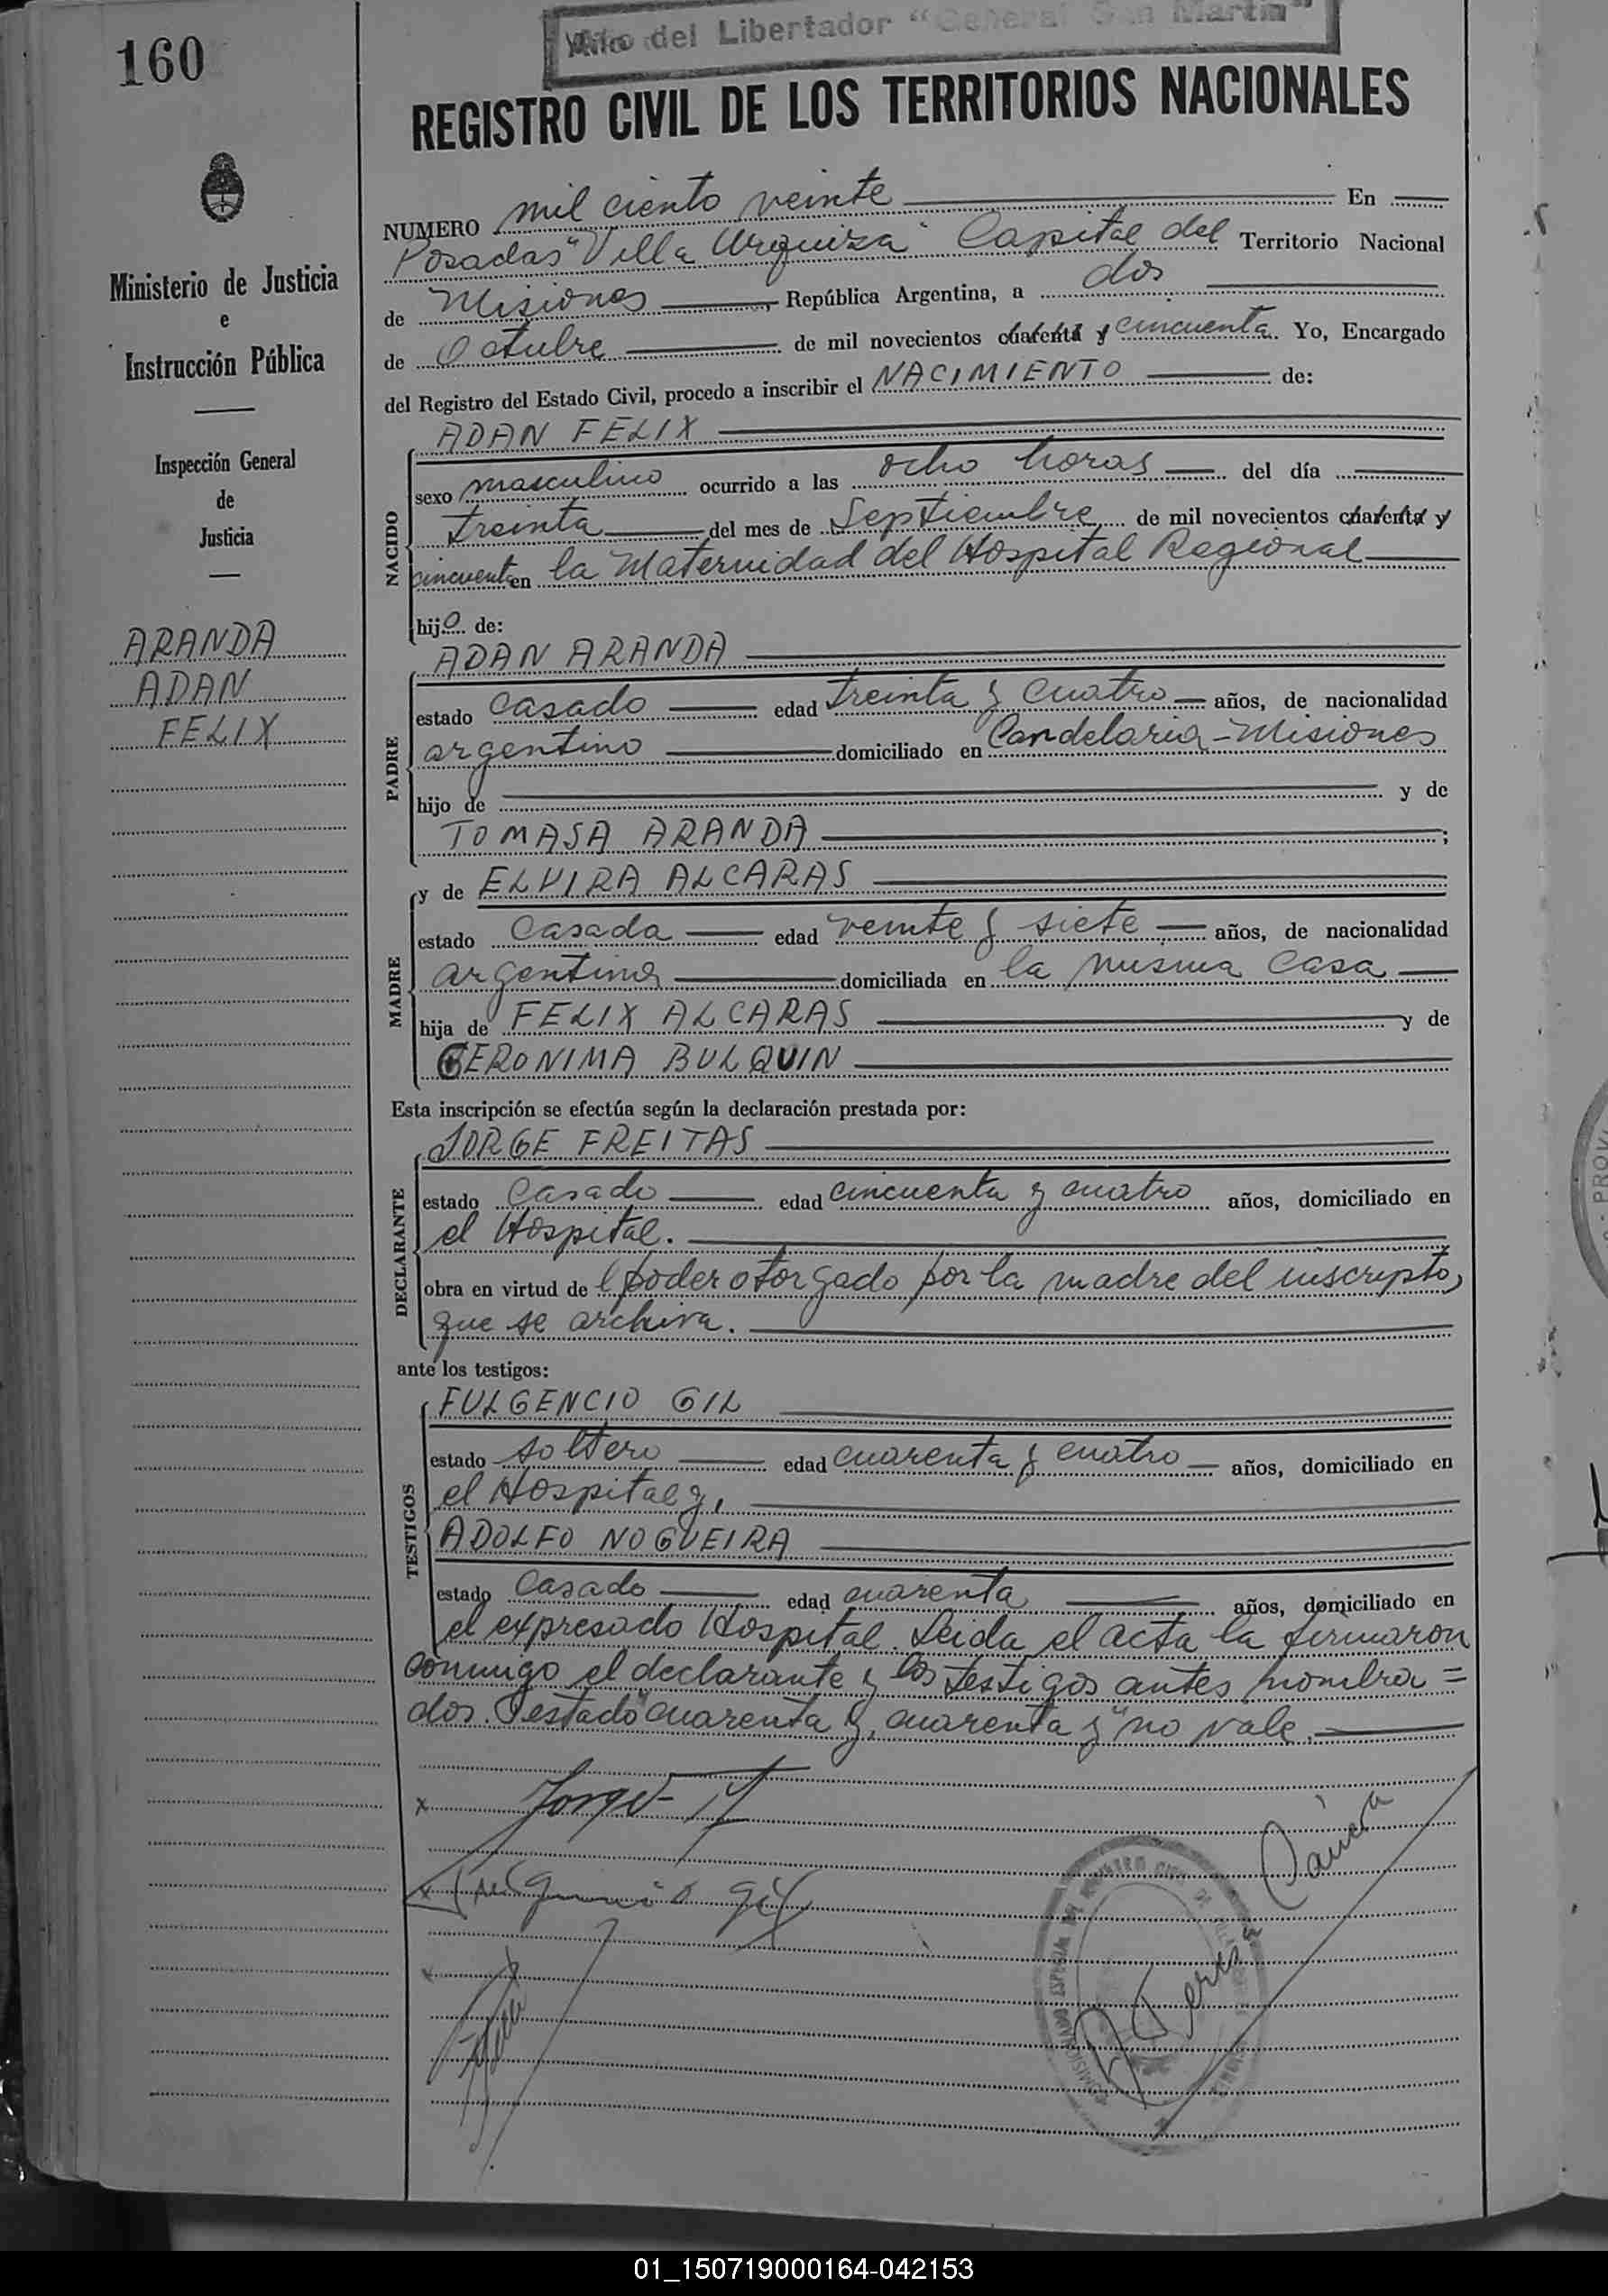 Año del Libertador "General San Martin"
160
REGISTRO CIVIL DE LOS TERRITORIOS NACIONALES
Ministerio de Justicia
e
Instrucción Pública
Inspección General
de
Justicia
ARANDA
ADAN
FELIX
NUMERO mil ciento veinte En
Posadas "Villa Urquiza" Capital del Territorio Nacional
de Misiones, República Argentina, a dos
de Octubre de mil novecientos cuarenta y cincuenta. Yo, Encargado
del Registro del Estado Civil, procedo a inscribir el NACIMIENTO de:
ADAN FELIX
NACIDO
sexo masculino ocurrido a las ocho horas del día
treinta del mes de Septiembre de mil novecientos cuarenta y
cincuenta en la Maternidad del Hospital Regional
hijo de:
ADAN ARANDA
PADRE
estado casado edad treinta y cuatro años, de nacionalidad
argentino domiciliado en Candelaria - Misiones
hijo de y de
TOMASA ARANDA;
y de ELVIRA ALCARAS
MADRE
estado casada edad veinte y siete años, de nacionalidad
argentina domiciliada en la misma casa
hija de FELIX ALCARAS y de
GERONIMA BULQUIN
Esta inscripción se efectúa según la declaración prestada por:
JORGE FREITAS
DECLARANTE
estado casado edad cincuenta y cuatro años, domiciliado en
el Hospital.
obra en virtud del poder otorgado por la madre del inscripto,
que se archiva.
ante los testigos:
FULGENCIO GIL
TESTIGOS
estado soltero edad cuarenta y cuatro años, domiciliado en
el Hospital y,
ADOLFO NOGUEIRA
estado casado edad cuarenta años, domiciliado en
el expresado Hospital. Leida el acta la firmaron
conmigo el declarante y los testigos antes nombra=
dos. Testado "cuarenta y, cuarenta y" no vale.
x Jorge
x Fulgencio Gil
x
01_150719000164-042153